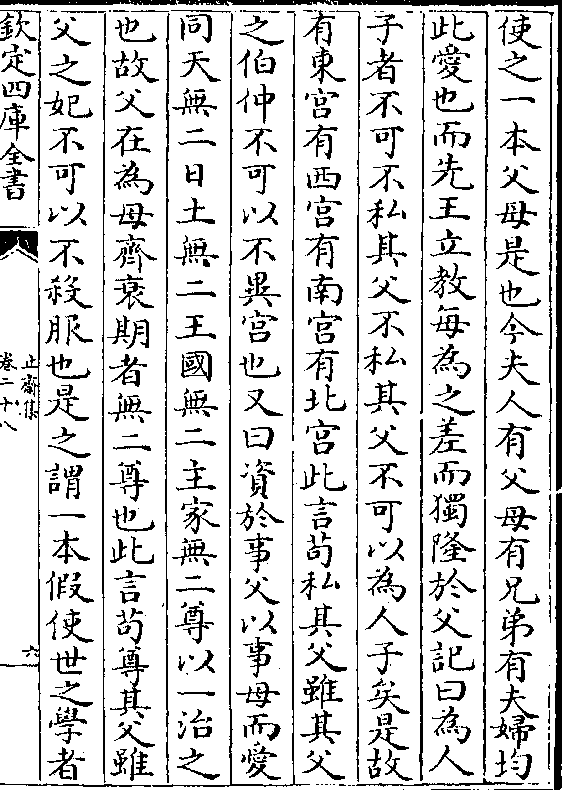 使之一本父母是也今夫人有父母有兄弟有夫婦均
此愛也而先王立教每為之差而獨隆於父記曰為人
子者不可不私其父不私其父不可以為人子矣是故
有東宮有西宮有南宮有北宮此言苟私其父雖其父
之伯仲不可以不異宮也又曰資於事父以事母而愛
同天無二日土無二王國無二主家無二尊以一治之
也故父在為母齊衰期者無二尊也此言苟尊其父雖
父之妃不可以不殺服也是之謂一本假使世之學者
欽定四庫全書
止齋集
卷二十八
六